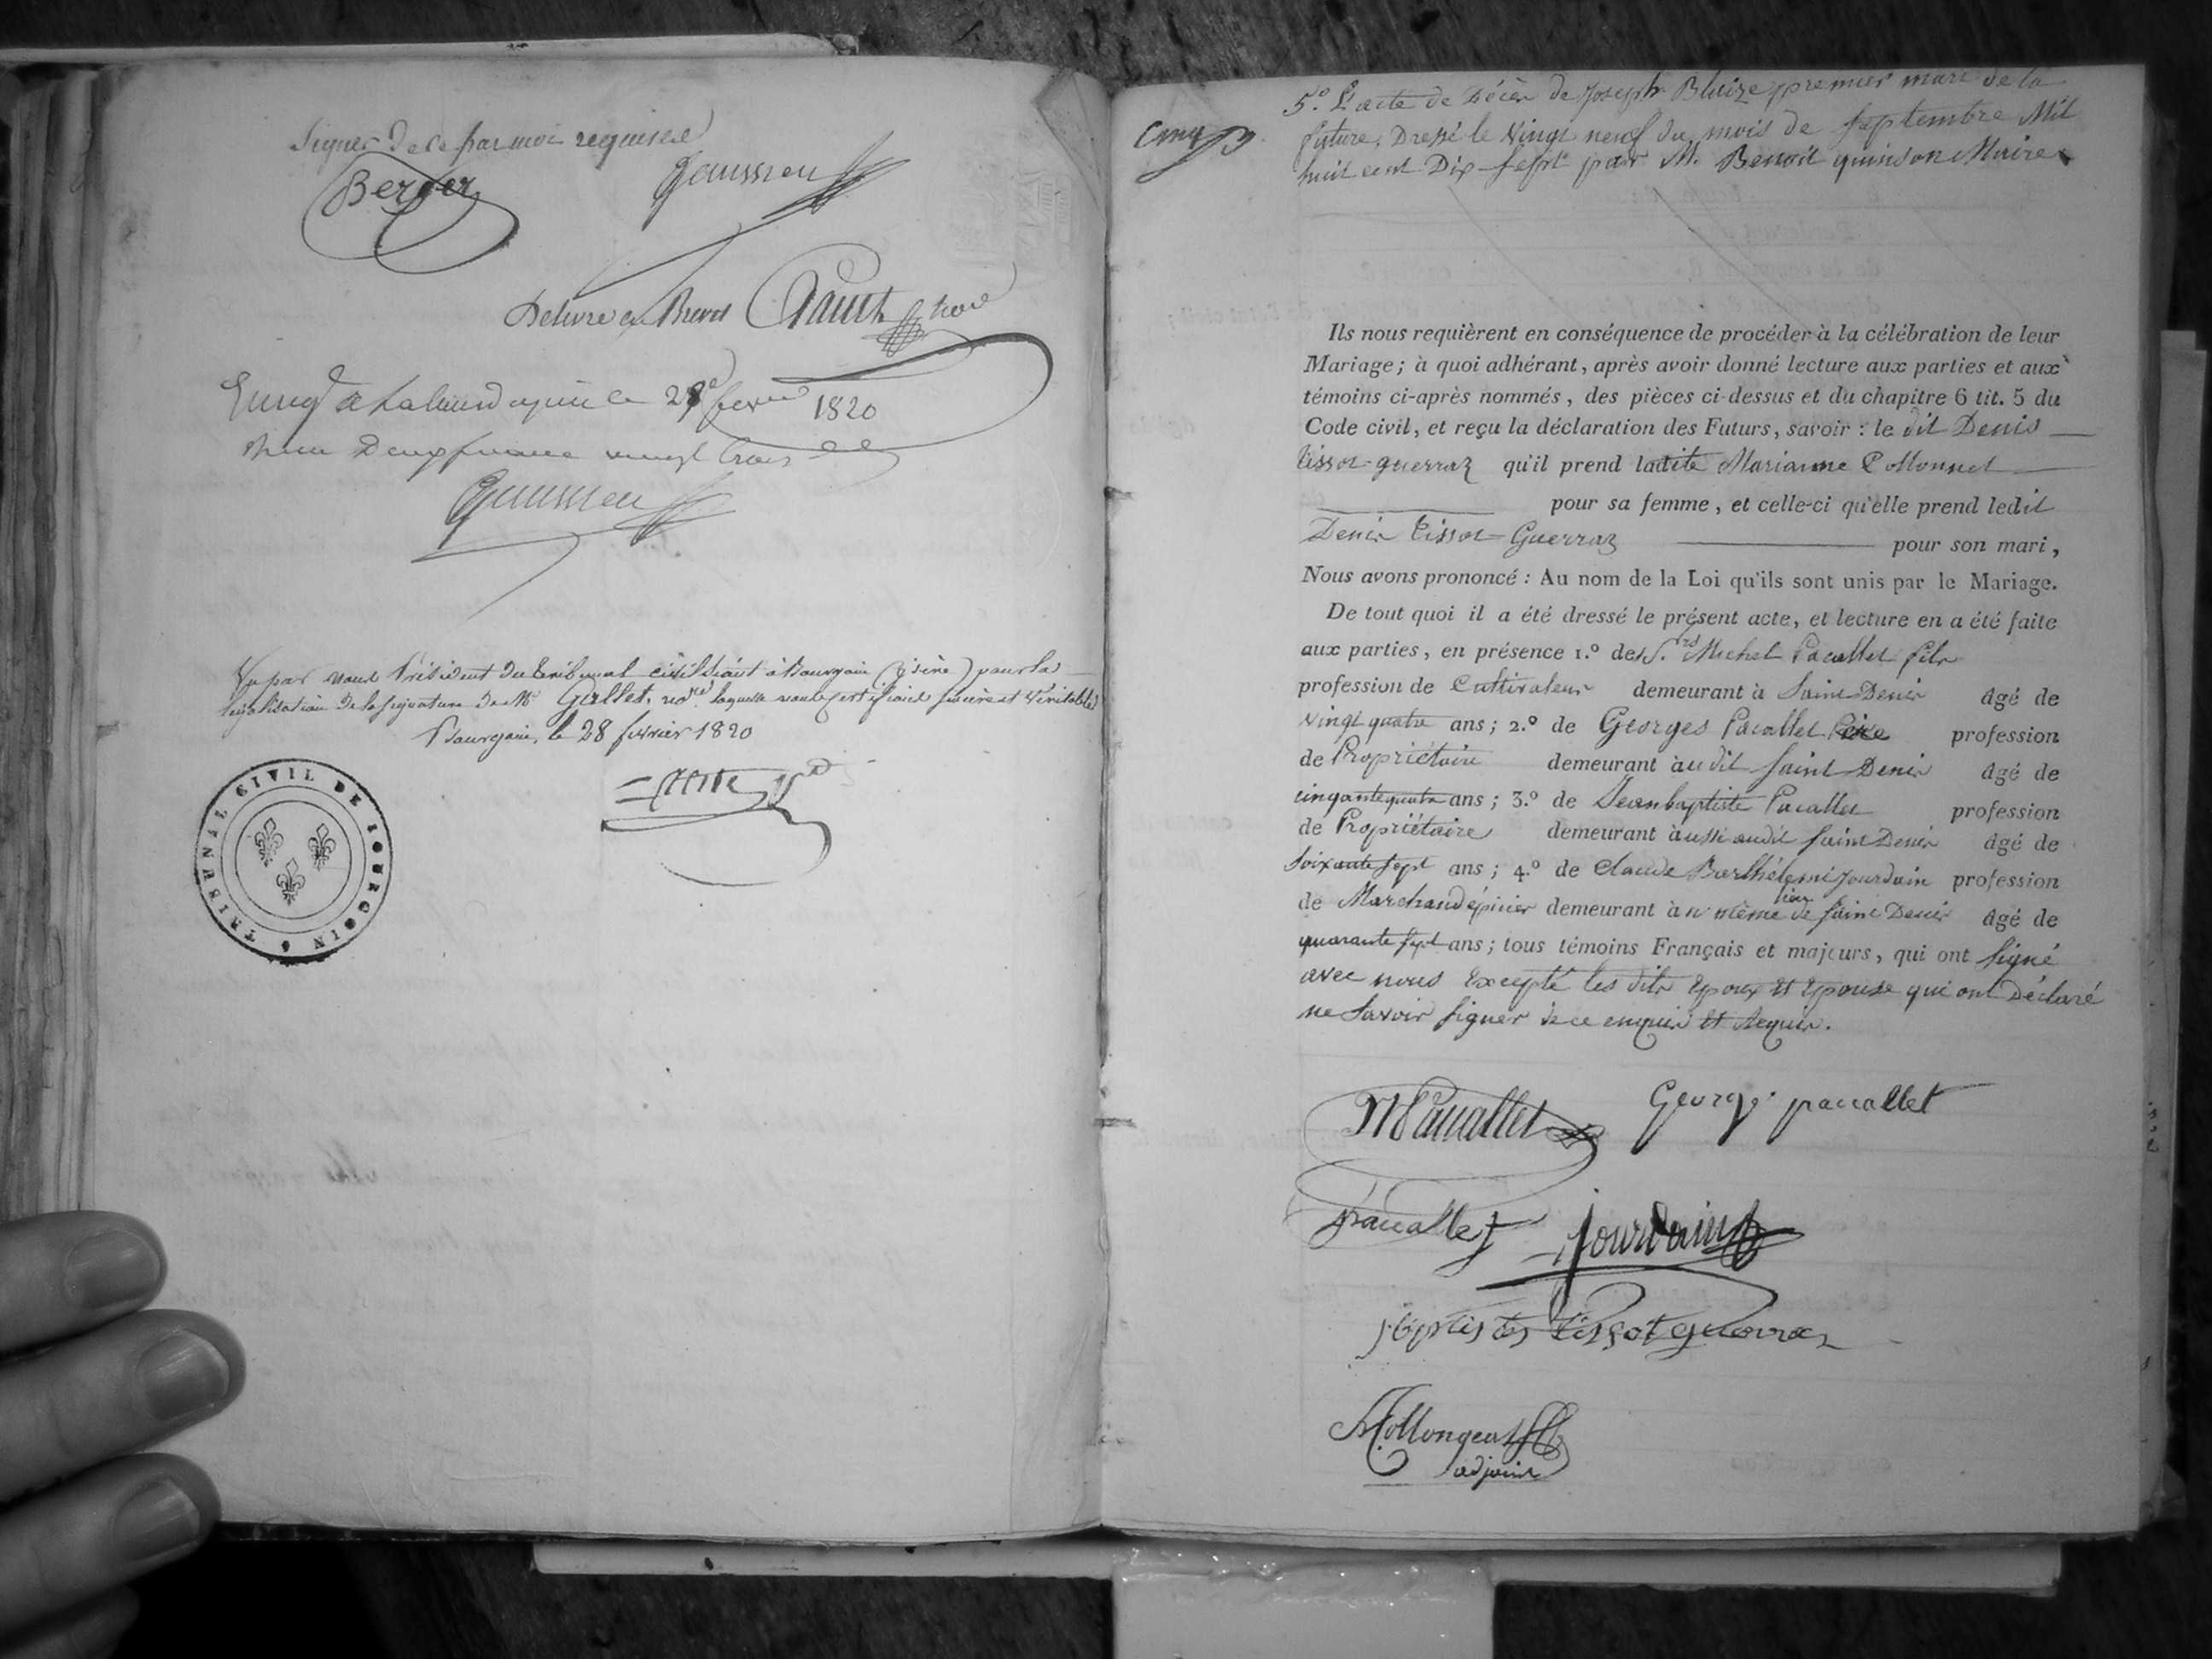 Signer de ce par moi requise
Berger
Delivré en Brevet
a 28 1820
vingt trois
Vu par nous Président du tribunal civil séant à Bourgoin (Isère) pour la
légalisation de la signature de Me Gallet, nore. laquelle nous certifions sincère et véritable
Bourgoin, le 28 février 1820
TRIBUNAL CIVIL DE BOURGOIN
5.o L'acte de Décès de Joseph Bluize premier mari de la
future, Dressé le vingt neuf du mois de septembre Mil
huit cent Dix-sept par M. Benoit quinson Maire
Ils nous requièrent en conséquence de procéder à la célébration de leur
Mariage; à quoi adhérant, après avoir donné lecture aux parties et aux
témoins ci-après nommés, des pièces ci-dessus et du chapitre 6 tit. 5 du
Code civil, et reçu la déclaration des Futurs, savoir : le dit Denis
tissot-guerraz qu'il prend ladite Marianne Collonnel
pour sa femme, et celle-ci qu'elle prend ledit
Denis tissot-Guerraz pour son mari,
Nous avons prononcé : Au nom de la Loi qu'ils sont unis par le Mariage.
De tout quoi il a été dressé le présent acte, et lecture en a été faite
aux parties, en présence 1.o des S.rs Michel Pacallet fils
profession de Cultivateur demeurant à Saint Denis âgé de
vingt quatre ans; 2.o de Georges Pacallet Père profession
de Propriétaire demeurant audit Saint Denis âgé de
cinqante quatre ans; 3.o de Jeanbaptiste Pacallet profession
de Propriétaire demeurant aussi audit Saint Denis âgé de
soixante sept ans; 4.o de Claude Barthélemi Jourdain profession
de Marchand épicier demeurant au même lieu de Saint Denis âgé de
quarante sept ans; tous témoins Français et majeurs, qui ont signé
avec nous Excepté les dits Epoux et Epouse qui ont Déclaré
ne savoir signer de ce enquis et Requis.
M Pacallet George pacallet
pacallet Jourdain
tissot guerraz
adjoint